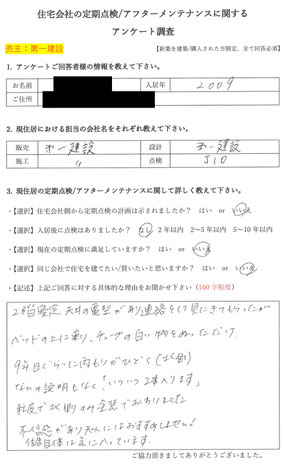 住宅会社の定期点検/アフターメンテナンスに関する
アンケート調査
売主：第一建設
【新築を建築/購入された方限定、全て回答必須】
1. アンケートご回答者様の情報を教えて下さい。
お名前 入居年 2009
ご住所
2. 現住居における担当の会社名をそれぞれ教えて下さい。
販売 第一建設 設計 第一建設
施工 〃 点検 JIO
3. 現住居の定期点検/アフターメンテナンスに関して詳しく教えて下さい。
・【選択】住宅会社側から定期点検の計画は示されましたか？ はい or いいえ
・【選択】入居後に点検はありましたか？ なし 2年以内 2～5年以内 5～10年以内
・【選択】現在の定期点検に満足していますか？ はい or いいえ
・【選択】同じ会社で住宅を建てたい/買いたいと思いますか？ はい or いいえ
・【記述】上記ご回答に対する具体的な理由をお聞かせ下さい（100字程度）
2階寝室 天井の亀裂があり連絡をして見にきてもらったが
ベッドの上に乗り、チューブの白い物をぬっただけ。
9年目ぐらいに雨もりがひどく
なんの説明もなく「いついつ工事入ります」
不信感があり友人にはおすすめしません！
ご協力頂きましてありがとうございました。